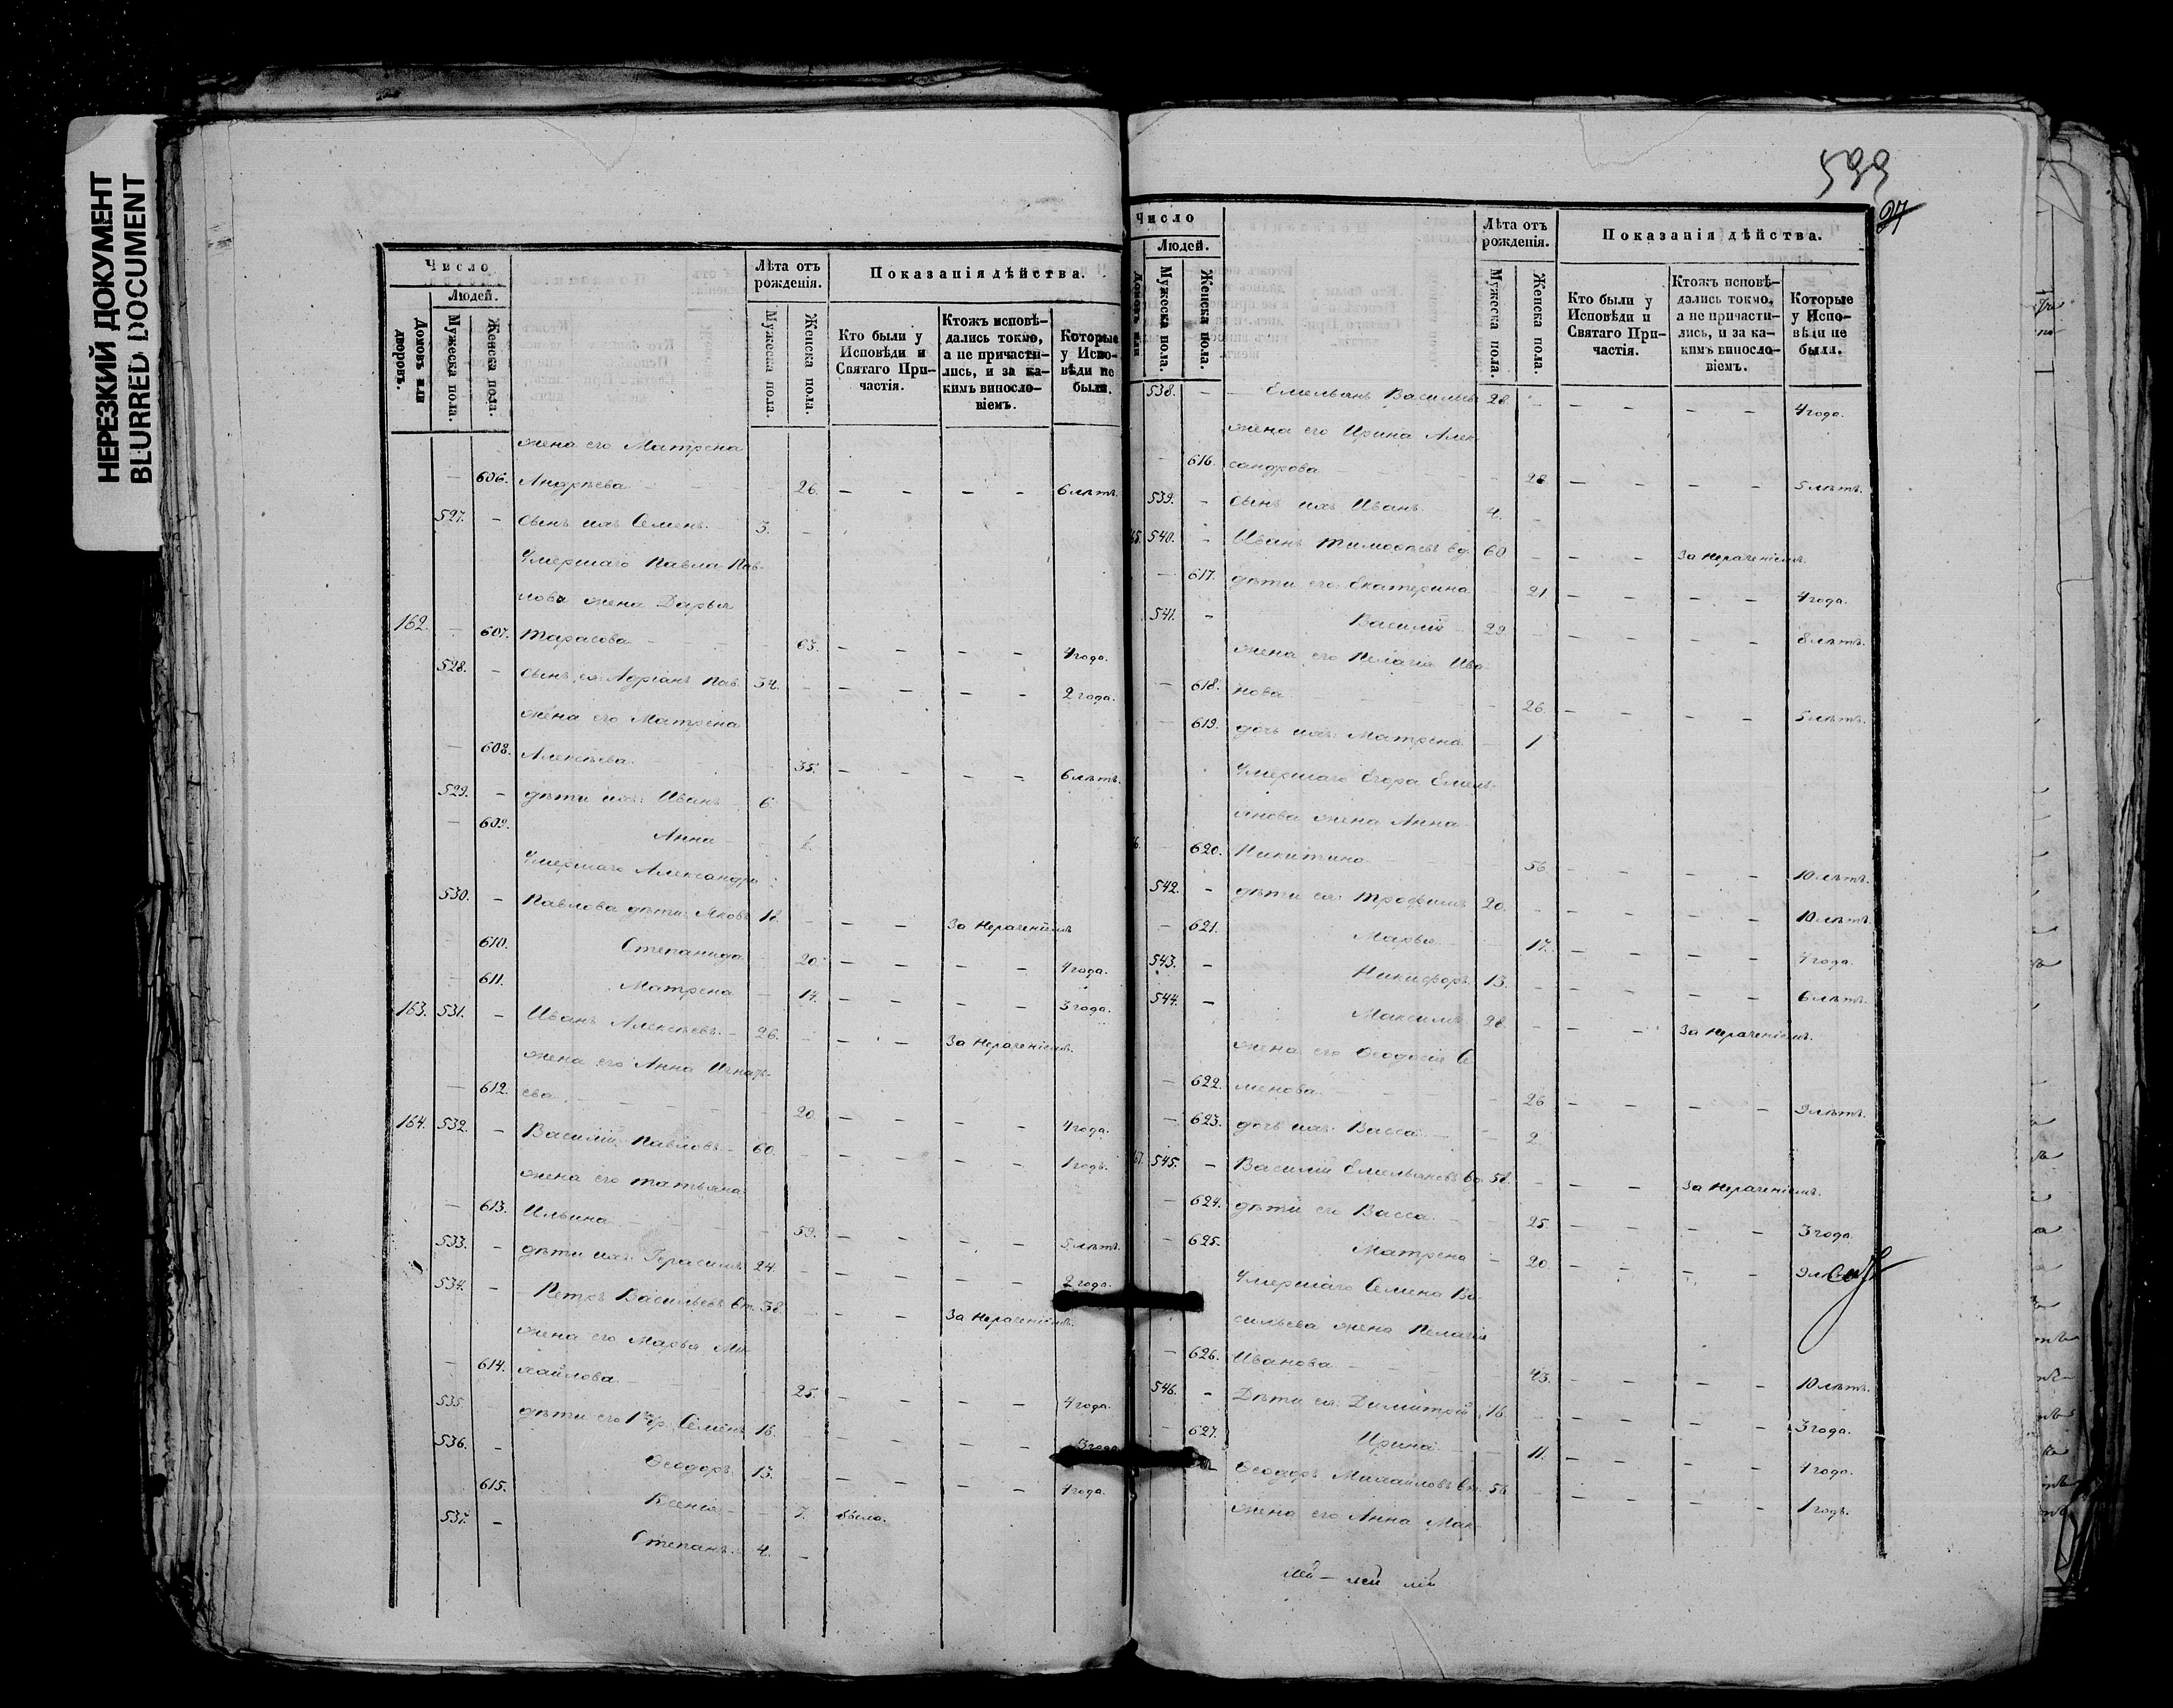 НЕРЕЗКИЙ ДОКУМЕНТ
BLURRED DOCUMENT
Число
Людей.
Домовъ или дворовъ.
Мужеска пола.
Женска пола.
Лѣта отъ рожденія.
Мужеска пола.
Женска пола.
Показанія дѣйства.
Кто были у Исповѣди и Святаго Причастія.
Ктожъ исповѣдались токмо, а не причастились, и за какимъ винословіемъ.
Которые у Исповѣди не были.
жена его Матрена
606. Андрѣева 26. — — — — 6 лѣтъ.
527. — сынъ ихъ Семенъ 3. —
Умершаго Павла Пав-
лова жена Дарья
162. — 607. Тарасова 63. — — — — 4 года.
528. — сынъ ея Адріанъ Пав. 34. — — — — 2 года.
жена его Матрена
— 608. Алексѣева 35. — — — — 6 лѣтъ.
529. — дѣти ихъ: Иванъ 6.
— 609. Анна
Умершаго Александра
530. — Павлова дѣти: Яковъ 18. — — За нераченіемъ
610. Степанида 20. — — — — 4 года.
611. Матрена 14. — — — — 3 года.
163. 531. — Иванъ Алексѣевъ 26. — — За нераченіемъ.
жена его Анна Игнать-
— 612. ева. 20. — — — — 4 года.
164. 532. — Василій Павловъ 60. — — — — 1 годъ.
жена его Татьяна
— 613. Ильина 59. — — — — 5 лѣтъ.
533. — дѣти ихъ: Герасимъ 24. — — — — 2 года.
534. — Петръ Васильевъ 38. — — За нераченіемъ.
жена его Марья Ми-
— 614. хайлова 25. — — — — 4 года.
535. дѣти его Семенъ 16. — — — — 3 года
536. — Ѳеодоръ 13. — — — — 1 года.
615. Ксенія 7. была.
537. — Степанъ 4. —
599
27
Число
Людей.
Домовъ или
Мужеска пола.
Женска пола.
Лѣта отъ рожденія.
Мужеска пола.
Женска пола.
Показанія дѣйства.
Кто были у Исповѣди и Святаго Причастія.
Ктожъ исповѣдались токмо, а не причастились, и за какимъ винословіемъ.
Которые у Исповѣди не были.
538. — Емельянъ Васильев 28. — — — — 4 года.
жена его Ирина Алек-
— 616. сандрова 28 — — — — 5 лѣтъ.
539. — сынъ ихъ Иванъ 4. —
540. — Иванъ Тимоѳеевъ вд. 60 — — За нераченіемъ.
— 617. дѣти его: Екатерина 21 — — — — 4 года.
541. — Василій 29. — — — — 8 лѣтъ.
жена его Пелагія Ива-
— 618. нова 26. — — — — 5 лѣтъ.
— 619. дочь ихъ: Матрена 1
Умершаго Егора Емель-
янова жена Анна
620. Никитина 56 — — — — 10 лѣтъ.
542. — дѣти ея: Трофимъ 20. — — — — 10 лѣтъ.
— 621. Марья 17. — — — — 4 года.
543. — Никифоръ 13. — — — — 6 лѣтъ.
544. — Максимъ 28. — — За нераченіемъ.
жена его Ѳеодосія Се-
— 622. менова 26 — — — — 9 лѣтъ.
— 623. дочь ихъ: Васса 2.
545. — Василій Емельяновъ вд. 58. — — За нераченіемъ.
— 624. дѣти его Васса 25. — — — — 3 года.
— 625. Матрена 20. — — — — 9
Умершаго Семена Ва-
сильева жена Пелагія
— 626. Иванова 43. — — — — 10 лѣтъ.
546. — Дѣти ея: Димитрій 16. — — — — 3 года.
— 627. Ирина 11. — — — — 4 года.
Ѳеодоръ Михайловъ 56 — — — — 1 годъ.
жена его Анна Мак-